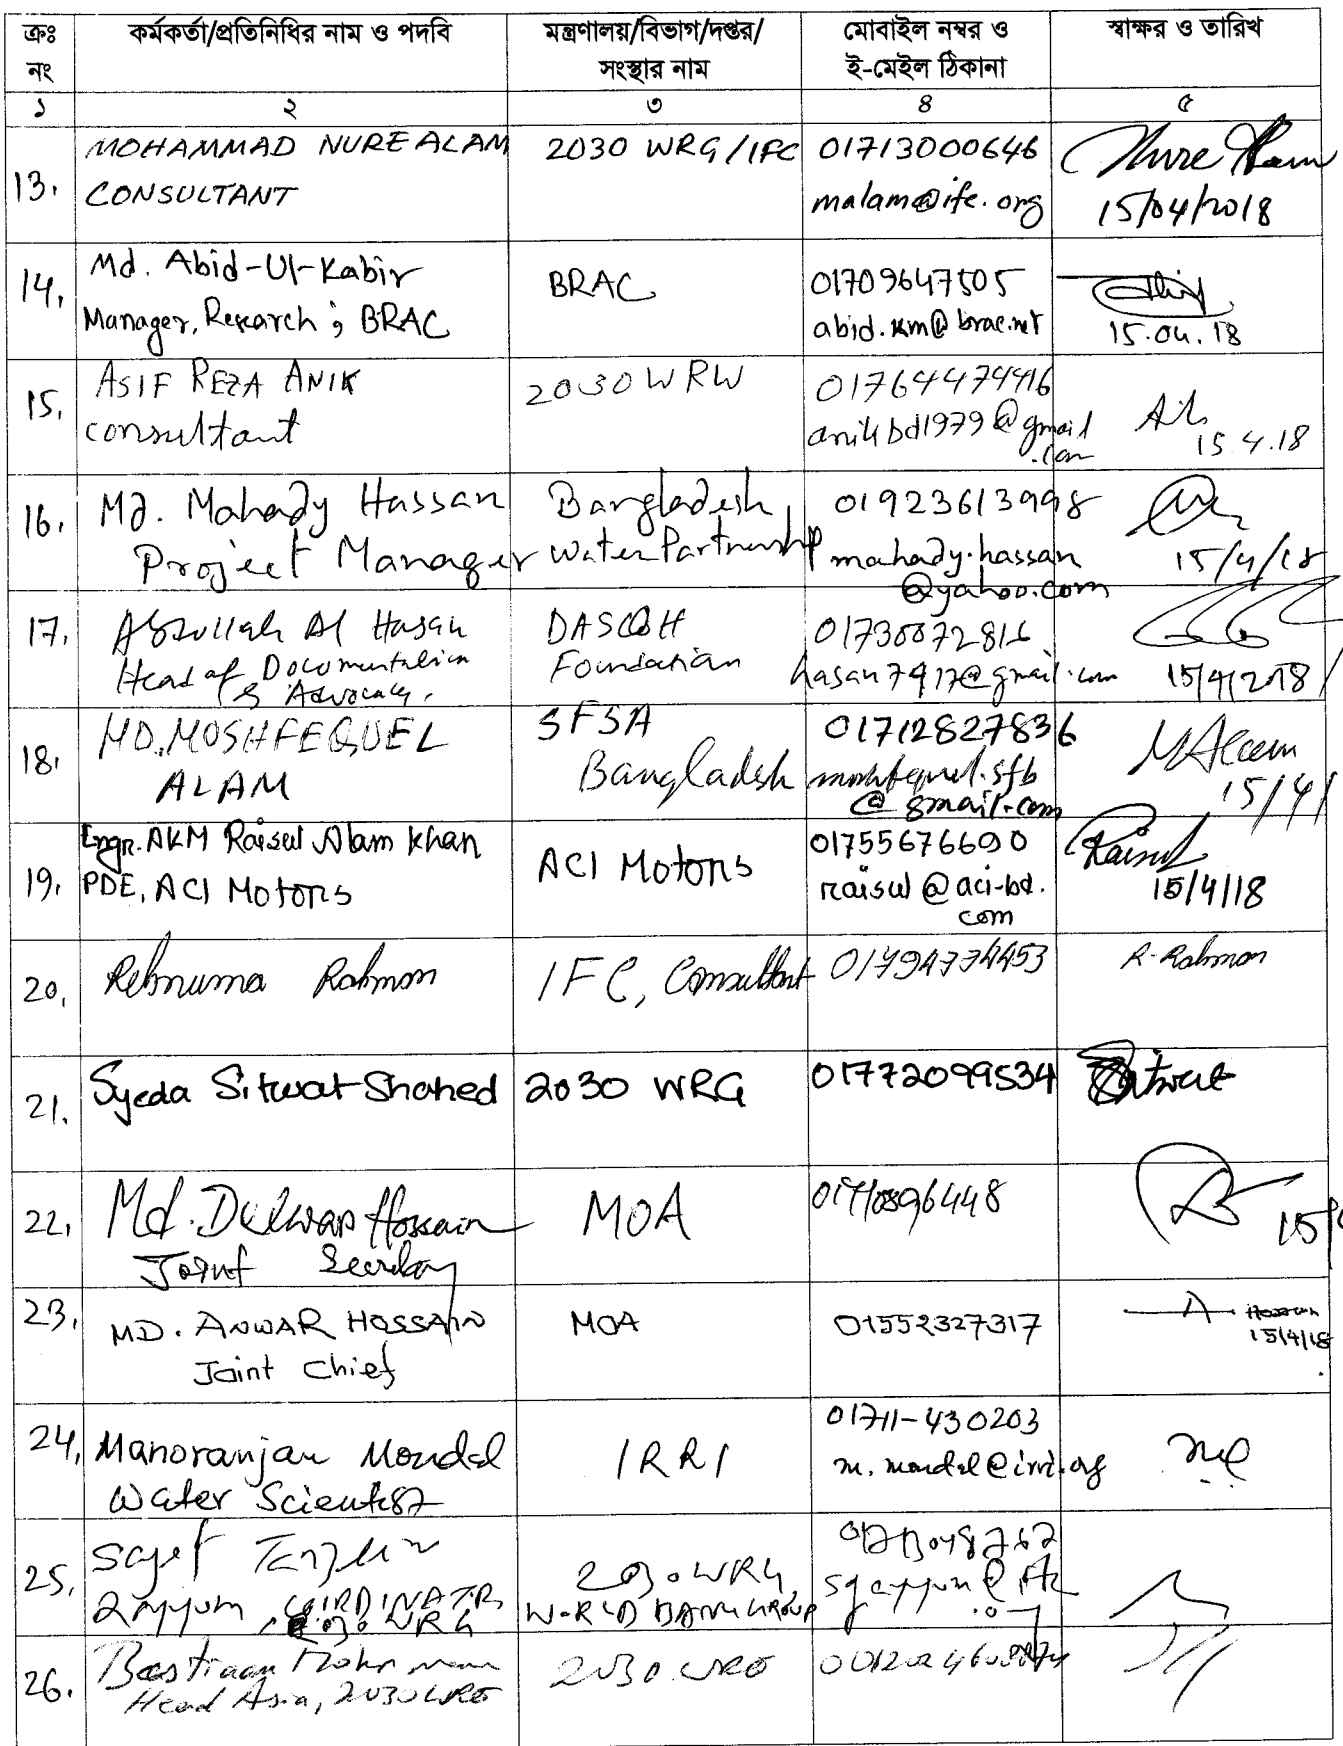 ক্রঃ নং
কর্মকর্তা/প্রতিনিধির নাম ও পদবি
মন্ত্রণালয়/বিভাগ/দপ্তর/
সংস্থার নাম
মোবাইল নম্বর ও
ই-মেইল ঠিকানা
স্বাক্ষর ও তারিখ
১ ২ ৩ ৪ ৫
13.
MOHAMMAD NURE ALAM
CONSULTANT
2030 WRG/IFC
01713000646
malam@ifc.org
Nure Alam
15/04/2018
14.
Md. Abid-Ul-Kabir
Manager, Research; BRAC
BRAC
01709647505
abid.km@brac.net
Abid
15.04.18
15.
ASIF REZA ANIK
consultant
2030 WRW
01764474416
anikbd1979@gmail
.com
15.4.18
16.
Md. Mahady Hassan
Project Manager
Bangladesh
Water Partnership
01923613998
mahady.hassan
@yahoo.com
15/4/18
17.
Abdullah Al Hasan
Head of Documentation
& Advocacy.
DASCOH
Foundation
hasan7417@gmail.com
15/4/2018
18.
MD. MOSHFEQUEL
ALAM
SFSA
Bangladesh
01712827836
moshfequel.sfb
@gmail.com
MAlam
15/4/
19.
Engr. AKM Raisul Alam Khan
PDE, ACI Motors
ACI Motors
01755676690
raisul@aci-bd.
com
Raisul
15/4/18
20.
Rehnuma Rahman
IFC, Consultant
01794774453
R. Rahman
21.
Syeda Sitwat Shahed
2030 WRG
01772099534
Sitwat
22.
Md. Delwar Hossain
Joint Secretary
MOA
15/
23.
MD. ANWAR HOSSAIN
Joint Chief
MOA
01552327317
A Hossain
15/4/18
24.
Manoranjan Mondal
Water Scientist
IRRI
01711-430203
m.mondal@irri.org
25.
2030 WRG
2030 WRG,
WORLD BANK GROUP
26.
Bastiaan Mohrmann
Head Asia, 2030 WRG
2030 WRG